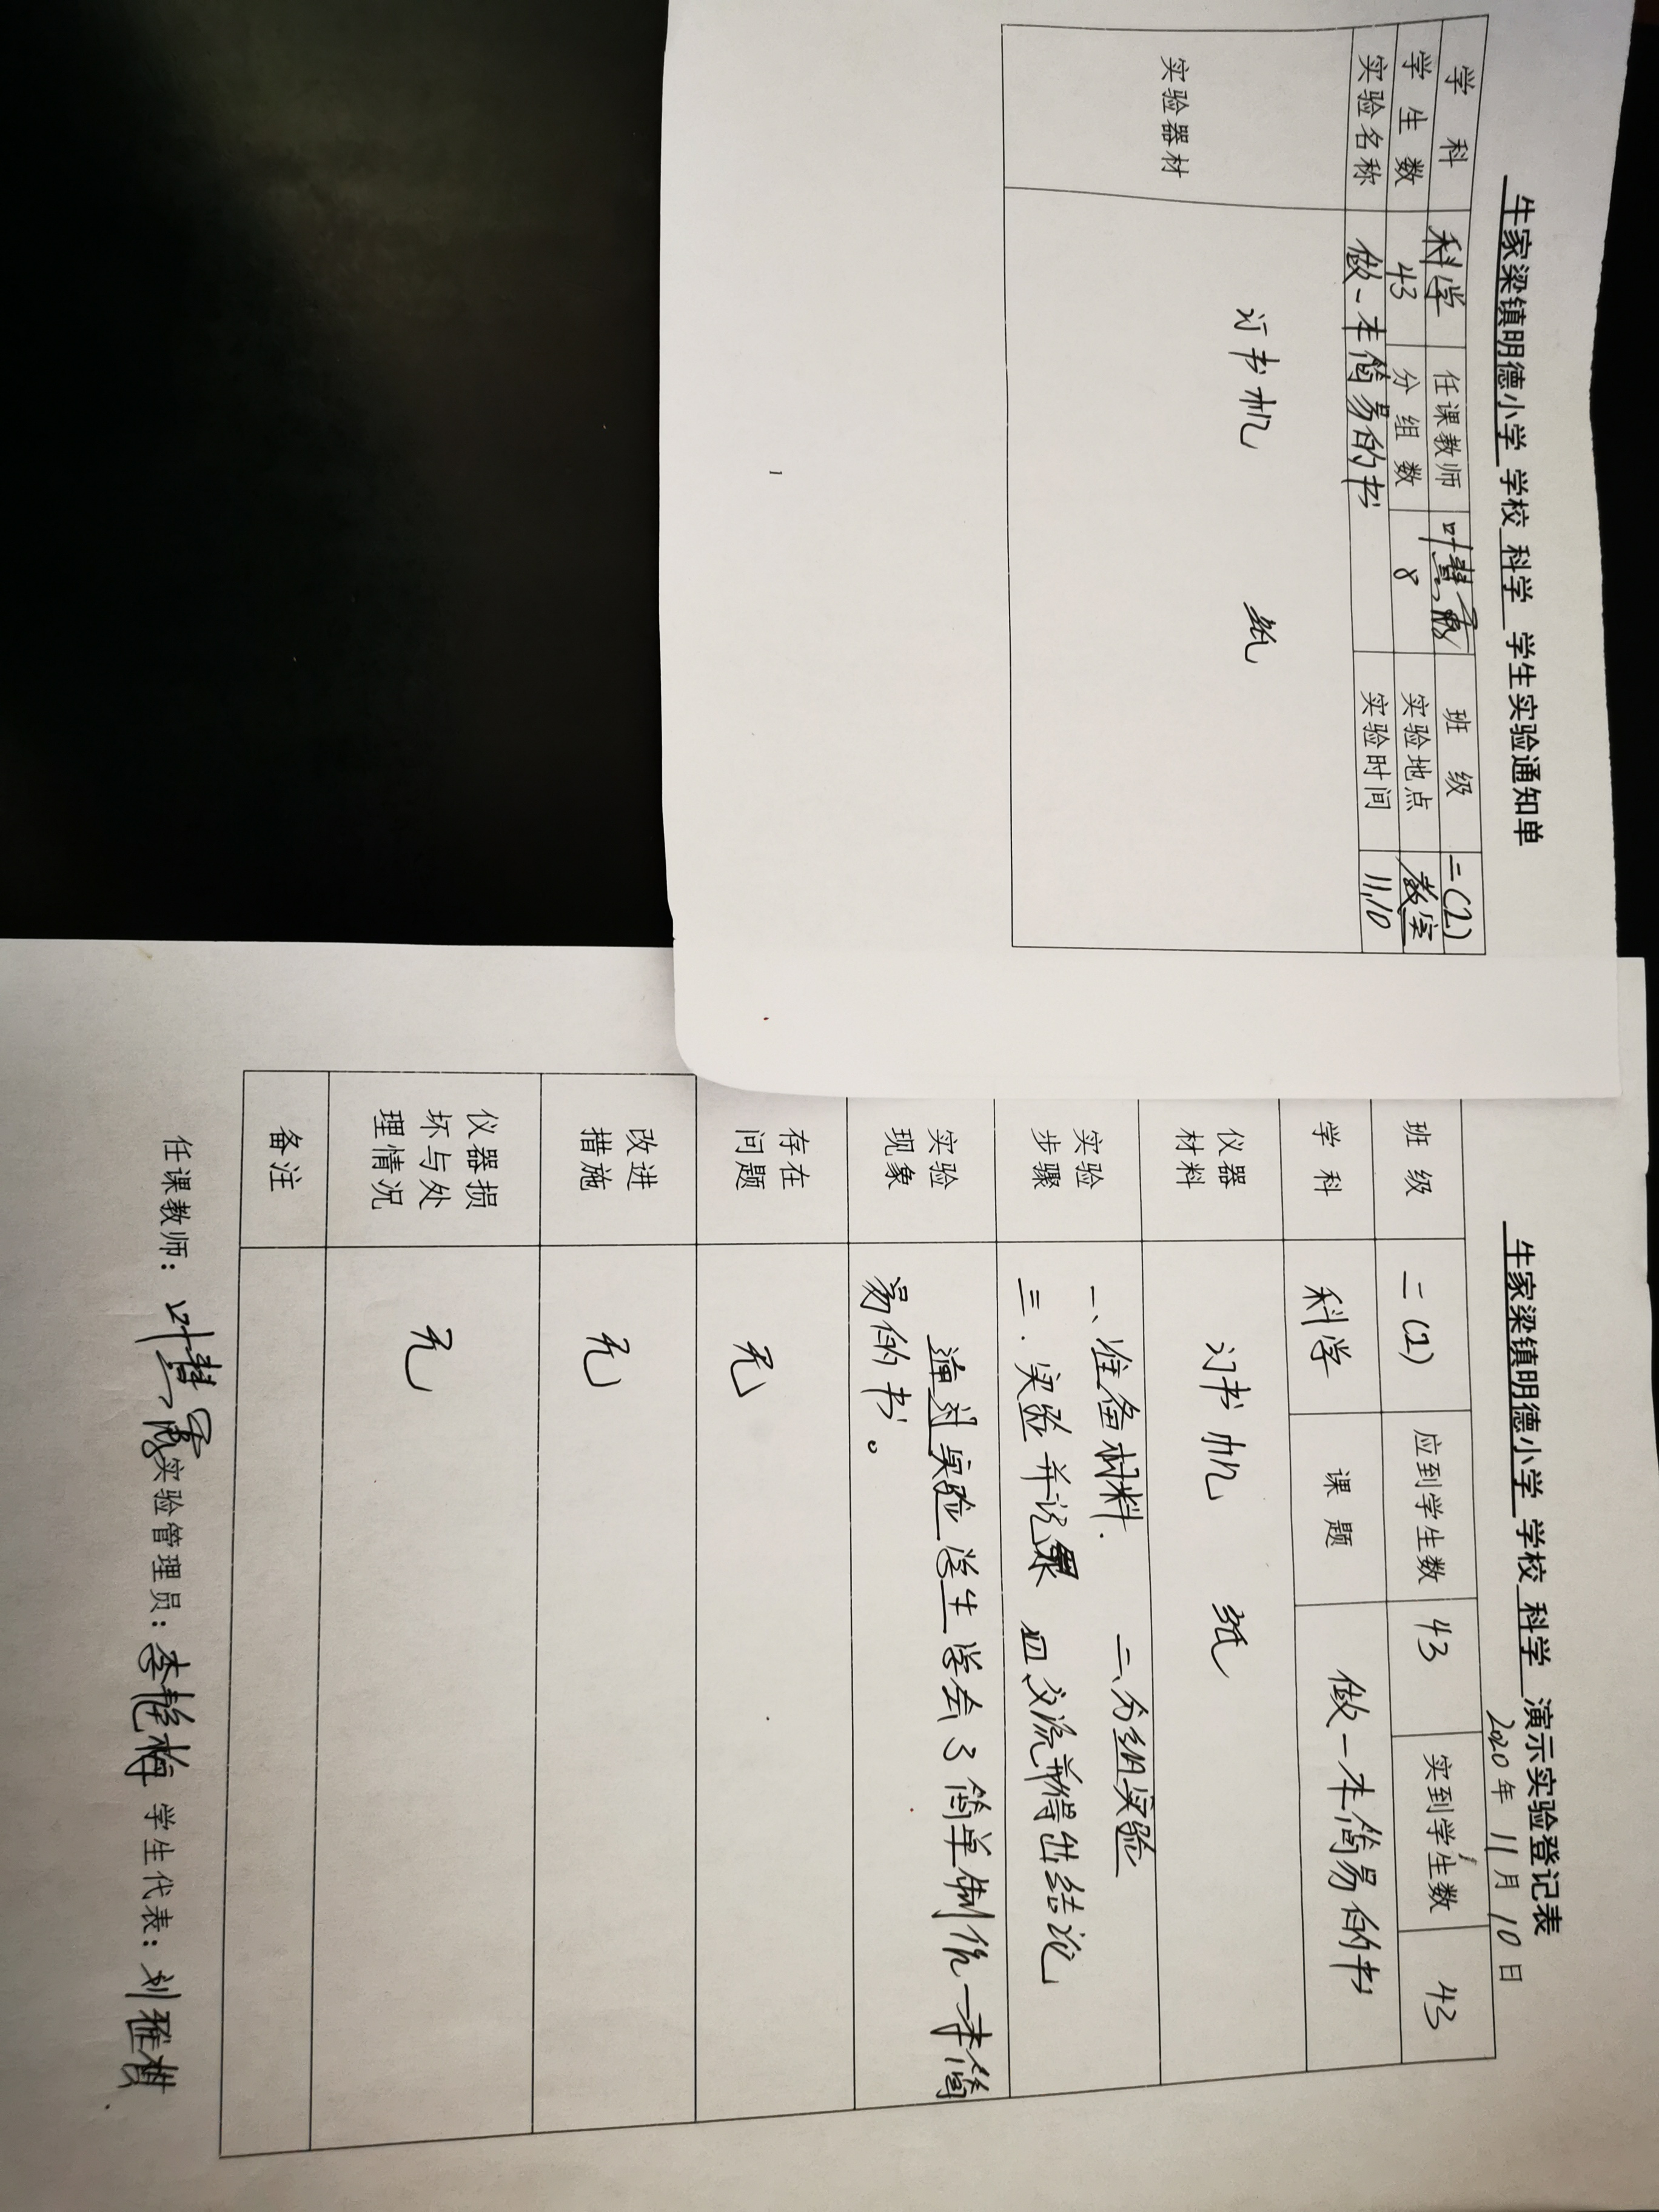 牛家梁镇明德小学 学校 科学 学生实验通知单
学 科 科学 任课教师 叶慧霞 班 级 二(2)
学 生 数 43 分 组 数 8 实验地点 教室
实验名称 做一本简易的书 实验时间 11.10
实验器材 订书机 纸
牛家梁镇明德小学 学校 科学 演示实验登记表
2020年 11月 10日
班 级 二(2) 应到学生数 43 实到学生数 43
学 科 科学 课 题 做一本简易的书
仪器
材料
订书机 纸
实验
步骤
一、准备材料. 二、分组实验
三.实验并记录 四、交流并得出结论
实验
现象
通过实验学生学会了简单制作一本简
易的书。
存在
问题
无
改进
措施
无
仪器损
坏与处
理情况
无
备注
任课教师: 叶慧霞 实验管理员: 李艳梅 学生代表: 刘雅